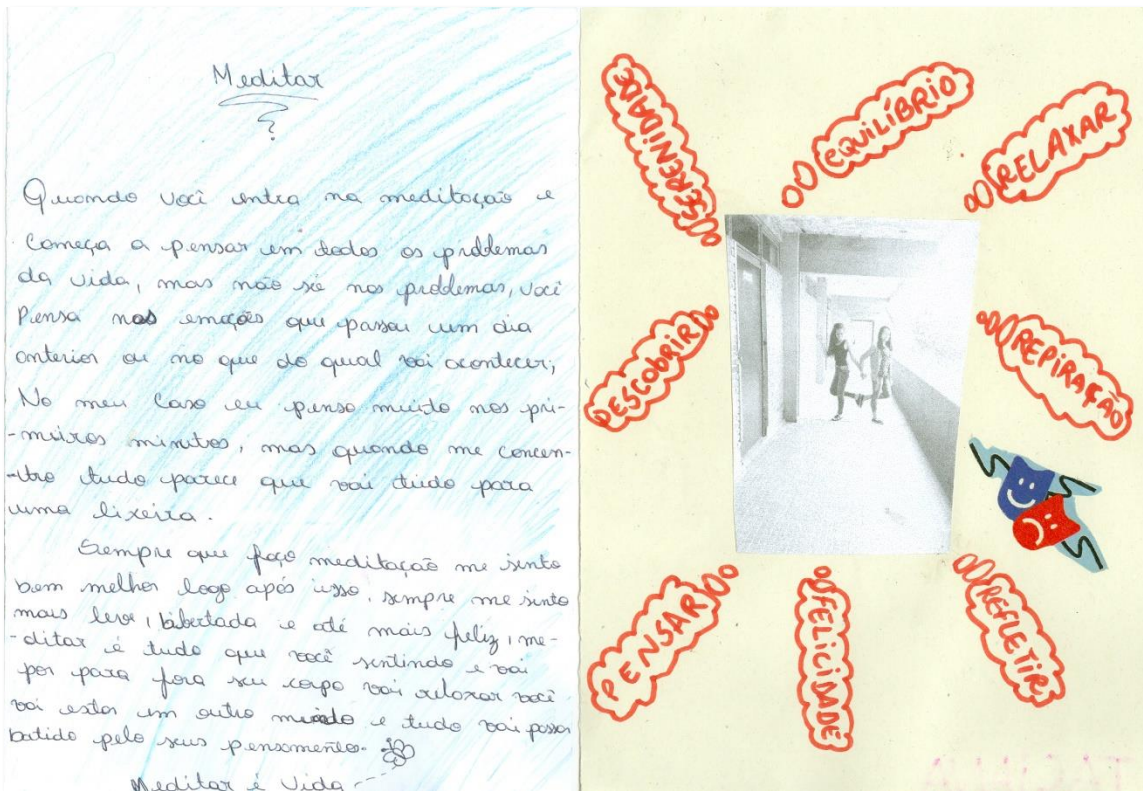 Meditar
?
Quando você entra na meditação e
Começa a pensar em todos os problemas
da vida, mas não só nos problemas, você
Pensa nas emoções que passou um dia
anterior ou no que do qual vai acontecer,
No meu caso eu penso muito nos pri-
-meiros minutos, mas quando me concen-
-tro tudo parece que vai tudo para
uma lixeira.
Sempre que faço meditação me sinto
bem melhor logo após isso, sempre me sinto
mais leve, libertada e até mais feliz, me-
-ditar é tudo que você sentindo e vai
por para fora seu corpo vai relaxar você
vai estar em outro mundo e tudo vai passar
batido pelo seus pensamento.
Meditar é Vida
SERENIDADE
EQUILÍBRIO
RELAXAR
DESCOBRIR
REPIRAÇÃO
PENSAR
FELICIDADE
REFLETIR